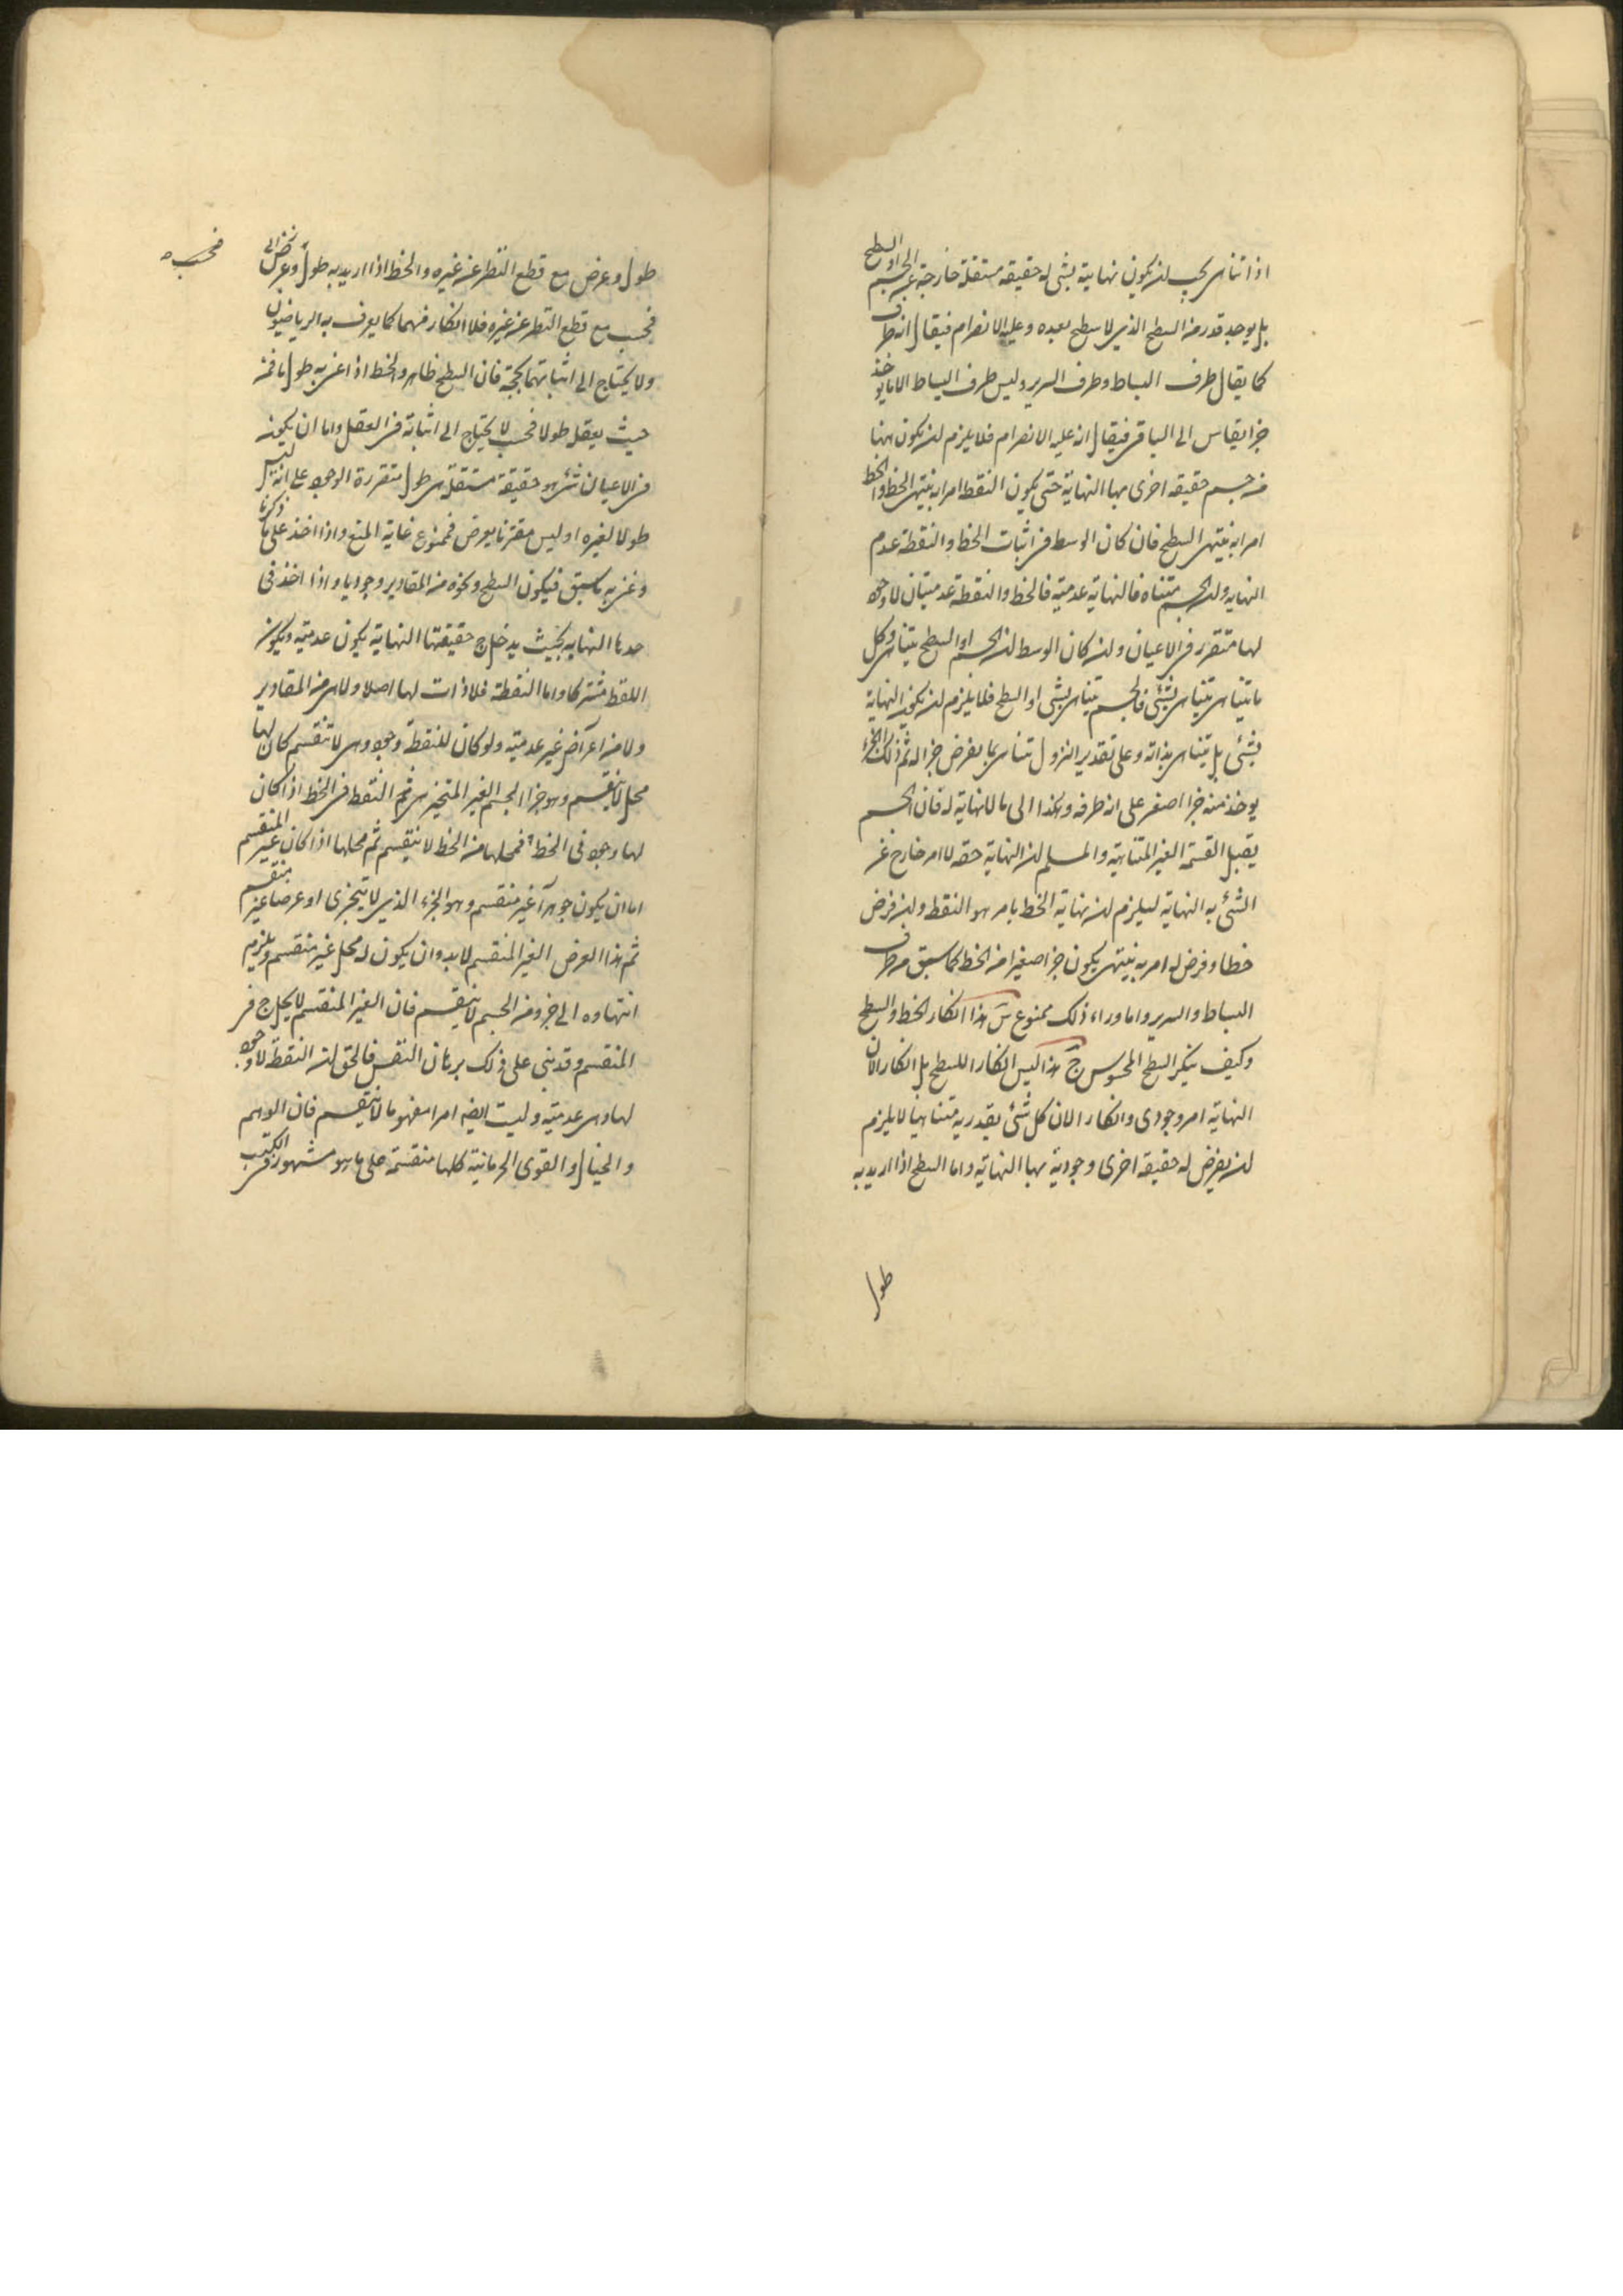 اذا تناهى يجب ان يكون نهايته بشئ له حقيقه مستقلة خارجة عن الجسم او السطح
بل يوجد قدر من السطح الذى لا سطح بعده وعليه الانصرام فيقال انه طرف
كما يقال طرف البساط وطرف السرير وليس طرف البساط الا ما يوخذ
جزا يقاس الى الباقى فيقال انه عليه الانصرام فلا يلزم ان يكون هنا
من جسم حقيقه اخرى بها النهاية حتى يكون النقط امرا به ينتهى الخط والخط
امرا به ينتهى السطح فان كان الوسط فى اثبات الخط والنقطة عدم
النهايه وان الجسم متناه فالنهاية عدمية فالخط والنقطة عدميتان لا وجود
لها متقرر فى الاعيان وان كان الوسط ان الجسم او السطح يتناهى وكل
ما يتناهى يتناهى بشئ فالجسم يتناهى بشئ او السطح فلا يلزم ان يكون النهاية
بشئ بل يتناهى بذاته وعلى تقدير النزول تناهى بما يفرض جزا له ثم ذلك الجزء
يوخذ منه جزا اصغر على انه طرفه وهكذا الى ما لا نهاية له فان الجسم
يقبل القسمة الغير المتناهية والمسلم ان النهاية حقه لا امر خارج عن
الشئ به النهاية ليلزم ان نهاية الخط بامر هو النقط وان فرض
خطا وفرض له امر به ينتهى يكون جزا صغيرا من الخط كما سبق من طرف
البساط والسرير واما وراء ذلك ممنوع س هذا انكار الخط والسطح
وكيف ينكر السطح المحسوس ج هذا ليس انكارا للسطح بل انكار الان
النهاية امر وجودى وانكار الان كل شئ يقدر به متناهيا لا يلزم
ان يفرض له حقيقه اخرى وجودية بها النهاية واما السطح اذا اريد به
طول
طول وعرض مع قطع النظر عن غيره والخط اذا اريد به طول وعرض
فحسب مع قطع النظر عن غيره فلا انكار فيهما كما يعرف به الرياضيون
ولا يحتاج الى اثباتهما بحجة فان السطح ظاهر والخط اذا عنى به طول ما فمن
حيث يعقل طولا فحسب لا يحتاج الى اثباته فى العقل واما ان يكون
فى الاعيان شئ هو حقيقة مستقلة هى طول متقررة الوجود على انه ليس
طولا لغيره او ليس مقترنا بعرض فممنوع غاية المنع واذا اخذ على ما ذكرنا
وعنى به ما سبق فيكون السطح ونحوه من المقادير وجوديا واذا اخذ فى
حدها النهايه بحيث يدخل ح حقيقتها النهاية يكون عدمية ويكون
اللفظ مشتركا واما النقطة فلا ذات لها اصلا ولا هى من المقادير
ولا من اعراض غير عدمية ولو كان للنقطة وجود وهى لا تنقسم كان لها
محل لا ينقسم وهو جزا الجسم الغير المتجزى ثم النقط فى الخط اذا كان
لها وجود فى الخط فمحلها من الخط لا ينقسم ثم محلها اذا كان غير المنقسم
اما ان يكون جوهرا غير منقسم وهو الجزء الذى لا يتجزى او عرضا غير منقسم
ثم هذا العرض الغير المنقسم لا بد وان يكون له محل غير منقسم ويلزم
انتهاوه الى جزو من الجسم لا ينقسم فان الغير المنقسم لا يحل ح فى
المنقسم وقد بنى على ذلك برهان النفس فالحق ان النقطة لا وجود
لها وهى عدمية وليست ايضه امرا مفهوما لا ينقسم فان الوهم
والخيال والقوى الجرمانية كلها منقسمة على ما هو مشهور فى الكتب